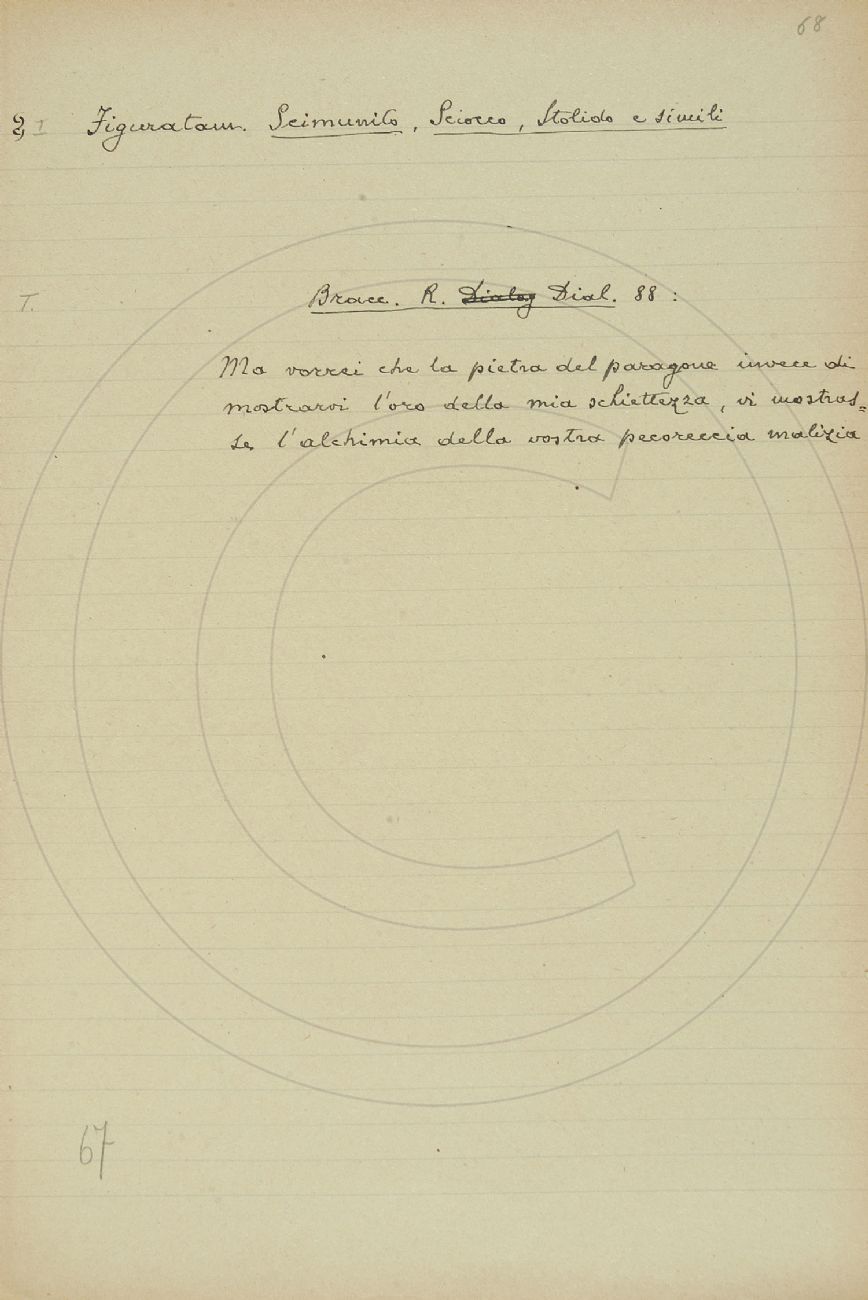 68
§ I Figuratam. Scimunito, Sciocco, Stolido e simili
T. Bracc. R. Dialog Dial. 88 :
Ma vorrei che la pietra del paragone invece di
mostrarvi l'oro della mia schiettezza, vi mostras=
se l'alchimia della vostra pecoreccia malizia
67